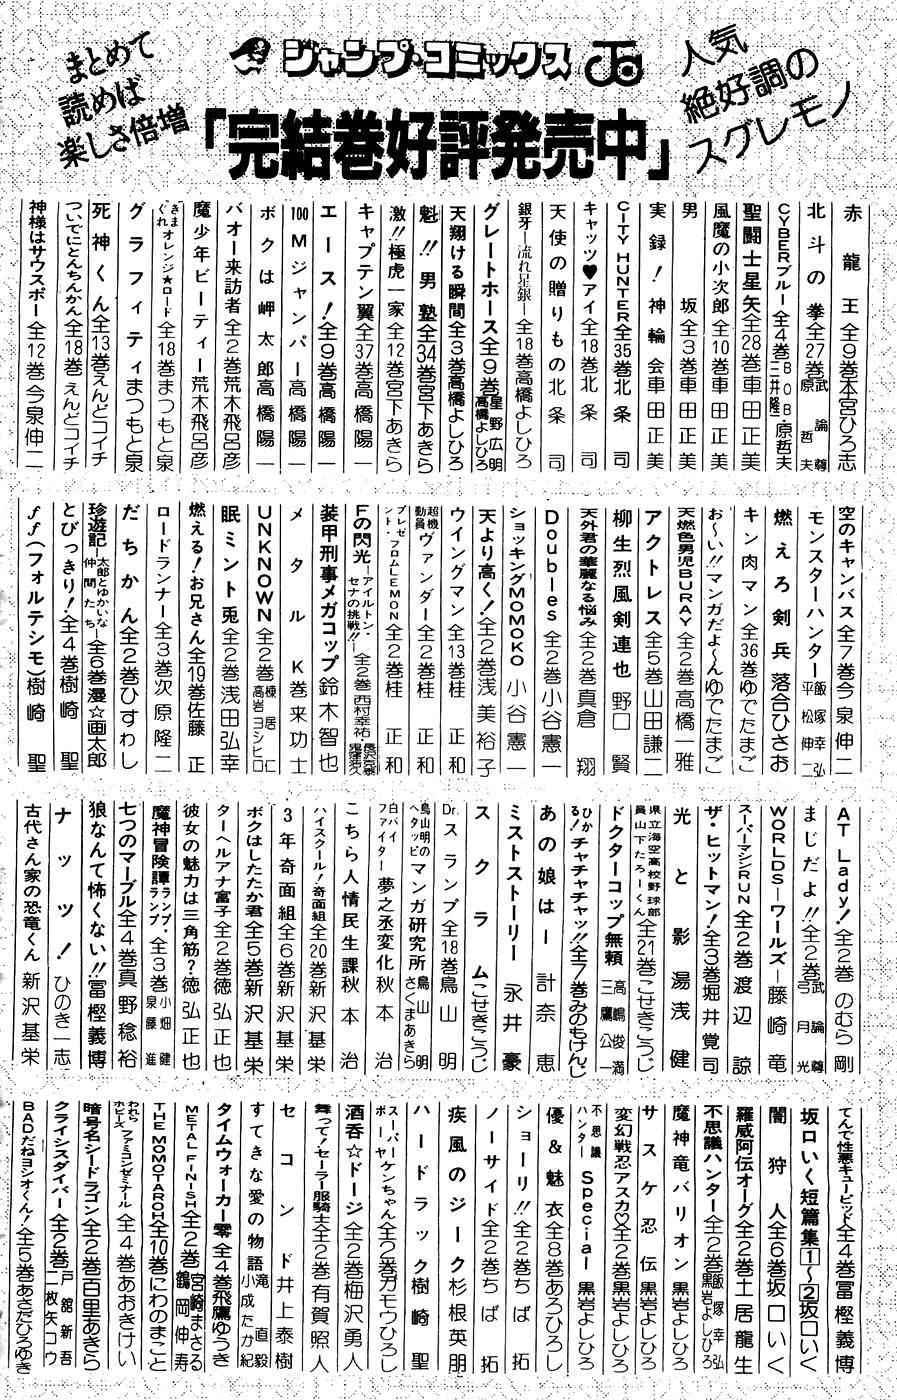 まとめて
読めば
楽しさ倍増
ジャンプ・コミックス
人気
絶好調の
スグレモノ
「完結巻好評発売中」
赤龍王 全9巻 本宮ひろ志
北斗の拳 全27巻 武論尊 原哲夫
CYBERブルー 全4巻 BOB 三井隆一 原哲夫
聖闘士星矢 全28巻 車田正美
風魔の小次郎 全10巻 車田正美
男坂 全3巻 車田正美
実録!神輪会 車田正美
CITY HUNTER 全35巻 北条司
キャッツ♥アイ 全18巻 北条司
天使の贈りもの 北条司
銀牙―流れ星銀― 全18巻 高橋よしひろ
グレートホース 全9巻 星野広明 高橋よしひろ
天翔ける瞬間 全3巻 高橋よしひろ
魁!!男塾 全34巻 宮下あきら
激!!極虎一家 全12巻 宮下あきら
キャプテン翼 全37巻 高橋陽一
エース! 全9巻 高橋陽一
100Mジャンパー 高橋陽一
ボクは岬太郎 高橋陽一
バオー来訪者 全2巻 荒木飛呂彦
魔少年ビーティー 荒木飛呂彦
きまぐれオレンジ★ロード 全18巻 まつもと泉
グラフィティ まつもと泉
死神くん 全13巻 えんどコイチ
ついでにとんちんかん 全18巻 えんどコイチ
神様はサウスポー 全12巻 今泉伸二
空のキャンバス 全7巻 今泉伸二
モンスターハンター 飯塚幸弘 平松伸二
燃えろ剣兵 落合ひさお
キン肉マン 全36巻 ゆでたまご
お〜い!!マンガだよ〜ん ゆでたまご
天燃色男児BURAY 全2巻 高橋一雅
アクトレス 全5巻 山田謙二
柳生烈風剣連也 野口賢
天外君の華麗なる悩み 全2巻 真倉翔
Doubles 全2巻 小谷憲一
ショッキングMOMOKO 小谷憲一
天より高く! 全2巻 浅美裕子
ウイングマン 全13巻 桂正和
超機動員ヴァンダー 全2巻 桂正和
プレゼント・フロムLEMON 全2巻 桂正和
Fの閃光―アイルトン・セナの挑戦!!― 全2巻 西村幸祐
装甲刑事メガコップ 鈴木智也
メタルK 巻来功士
UNKNOWN 全2巻 棟居仁 高岩ヨシヒロ
眠ミント兎 全2巻 浅田弘幸
燃える!お兄さん 全19巻 佐藤正
ロードランナー 全3巻 次原隆二
だちかん 全2巻 ひすわし
珍遊記―太郎とゆかいな仲間たち― 全6巻 漫☆画太郎
とびっきり! 全4巻 樹崎聖
ff(フォルテシモ) 樹崎聖
AT Lady! 全2巻 のむら剛
まじだよ!! 全2巻 武論尊 弓月光
WORLDS―ワールズ― 藤崎竜
スーパーマシンRUN 全2巻 渡辺諒
ザ・ヒットマン! 全3巻 堀井覚司
光と影 湯浅健
県立海空高校野球部員山下たろーくん 全21巻 こせきこうじ
ドクターコップ無頼 高嶋俊満 三鷹公一
ひかる!チャチャチャッ!! 全7巻 みのもけんじ
あの娘は― 計奈恵
ミストストーリー 永井豪
スクラム こせきこうじ
Dr.スランプ 全18巻 鳥山明
鳥山明のヘタッピマンガ研究所 鳥山明 さくまあきら
白バイファイター 夢之丞変化 秋本治
こちら人情民生課 秋本治
ハイスクール!奇面組 全20巻 新沢基栄
3年奇面組 全6巻 新沢基栄
ボクはしたたか君 全5巻 新沢基栄
ターヘルアナ富子 全2巻 徳弘正也
彼女の魅力は三角筋? 徳弘正也
魔神冒険譚ランプ・ランプ 全3巻 小畑健 泉藤進
七つのマーブル 全4巻 真野稔裕
狼なんて怖くない!! 冨樫義博
ナッツ! ひのき一志
古代さん家の恐竜くん 新沢基栄
てんで性悪キューピッド 全4巻 冨樫義博
坂口いく短篇集1〜2 坂口いく
闇狩人 全6巻 坂口いく
羅威阿伝オーグ 全2巻 土居龍生
不思議ハンター 全2巻 飯塚幸弘 黒岩よしひろ
魔神竜バリオン 黒岩よしひろ
サスケ忍伝 黒岩よしひろ
変幻戦忍アスカ♡ 全2巻 黒岩よしひろ
不思議ハンターSpecial 黒岩よしひろ
優&魅衣 全8巻 あろひろし
ショーリ!! 全2巻 ちば拓
ノーサイド 全2巻 ちば拓
疾風のジーク 杉根英朋
ハードラック 樹崎聖
スーパーボーヤ ケンちゃん 全2巻 ガモウひろし
酒呑☆ドージ 全2巻 梅沢勇人
舞って!セーラー服騎士 全2巻 有賀照人
セコンド 井上泰樹
すてきな愛の物語 滝直毅 小成たか紀
タイムウォーカー零 全4巻 飛鷹ゆうき
METAL FINISH 全2巻 宮崎まさる 鶴岡伸寿
THE MOMOTAROH 全10巻 にわのまこと
われらホビーズファミコンゼミナール 全4巻 あおきけい
暗号名シードラゴン 全2巻 百里あきら
クライシスダイバー 全2巻 戸舘新吾 二枚矢コウ
BADだねヨシオくん! 全5巻 あさだひろゆき